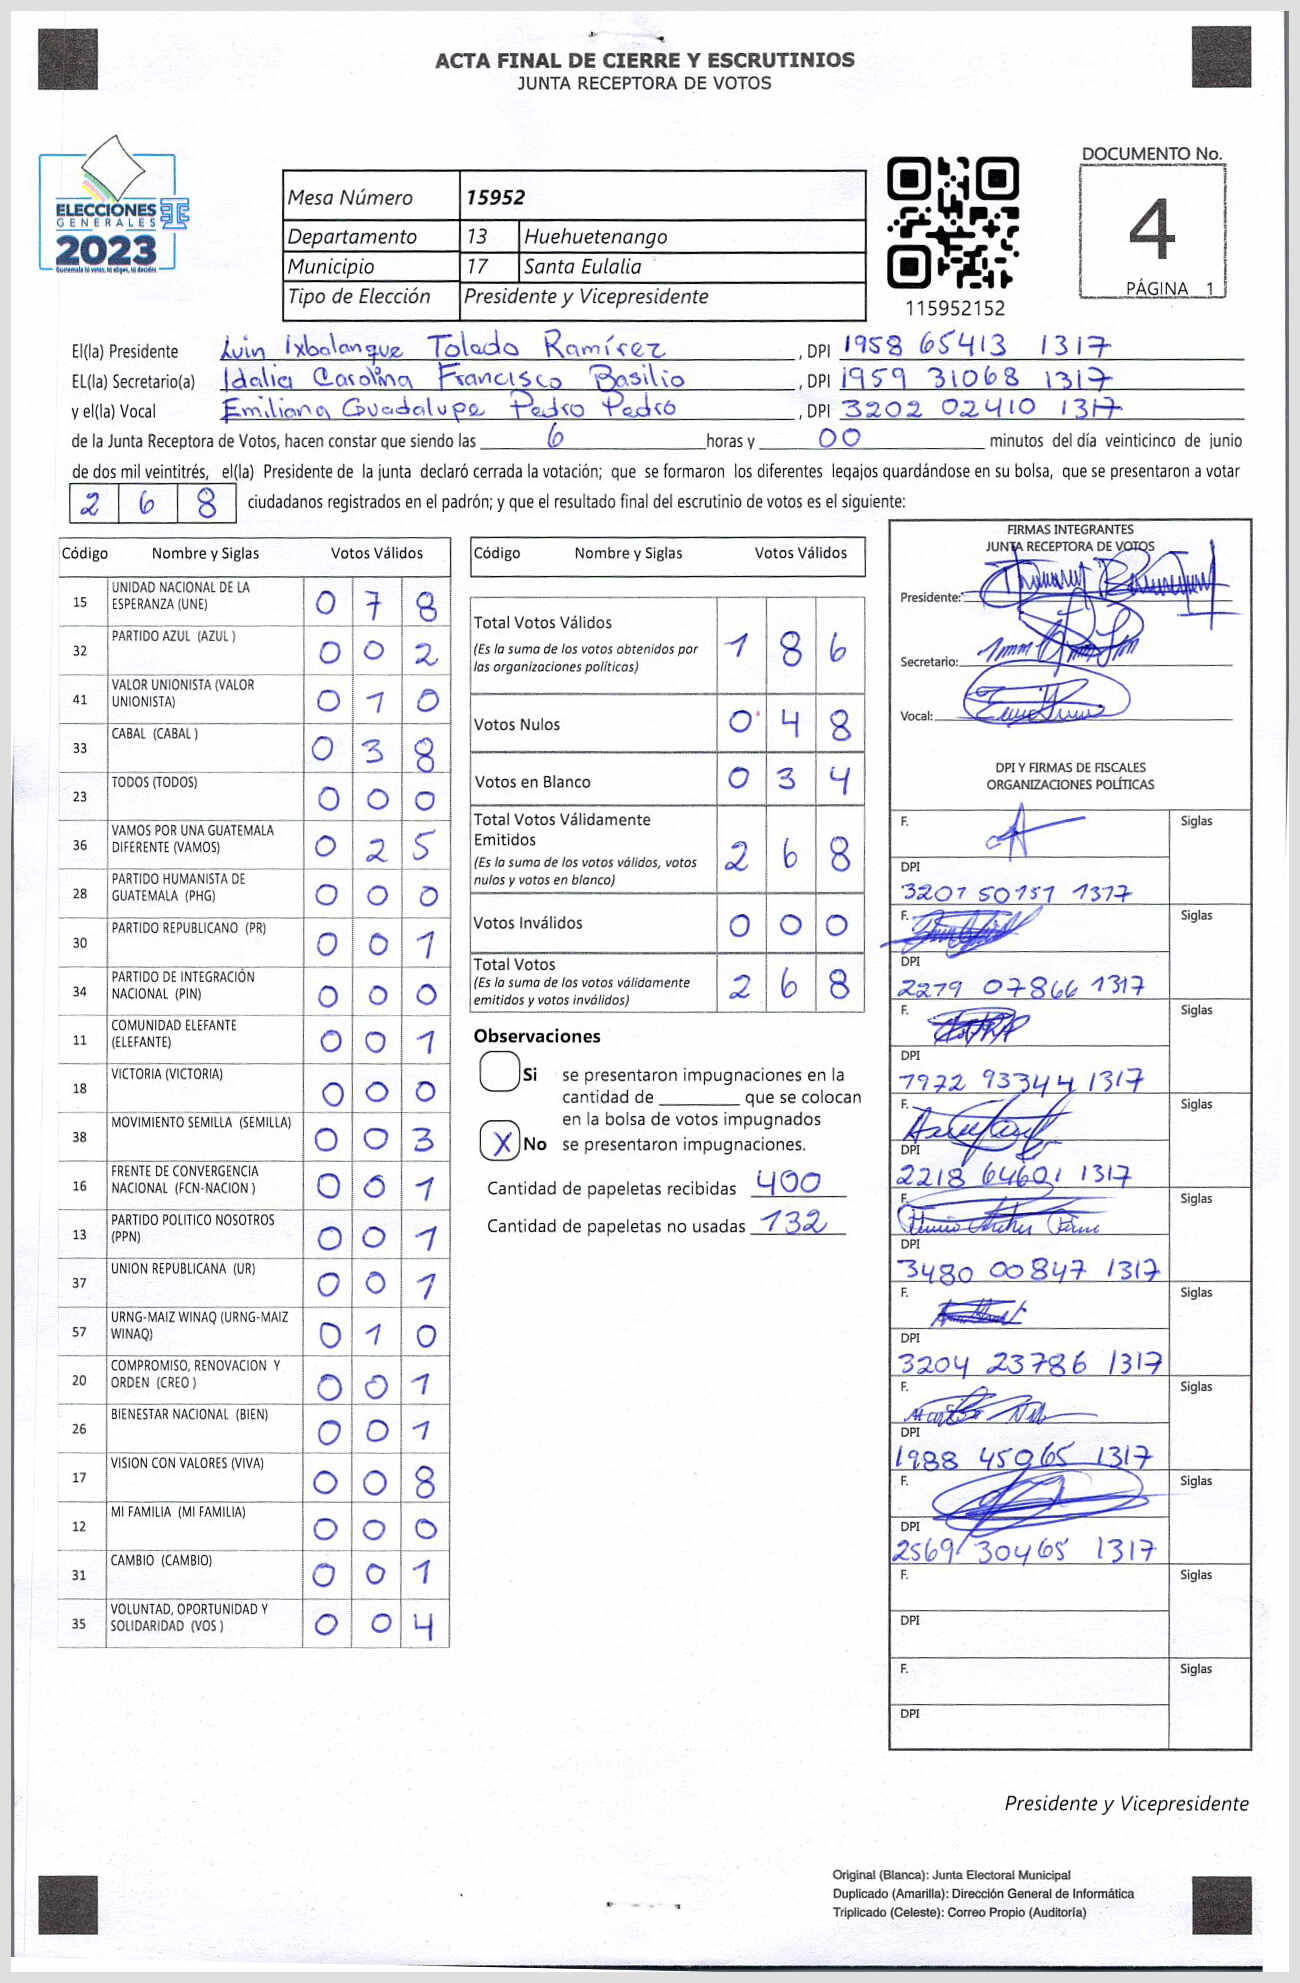 ACTA FINAL DE CIERRE Y ESCRUTINIOS
JUNTA RECEPTORA DE VOTOS
ELECCIONES
GENERALES
2023
Guatemala tú votas, tú eliges, tú decides
Mesa Número 15952
Departamento 13 Huehuetenango
Municipio 17 Santa Eulalia
Tipo de Elección Presidente y Vicepresidente
115952152
DOCUMENTO No.
4
PÁGINA 1
El(la) Presidente Luin Ixbalanque Toledo Ramírez, DPI 1958 65413 1317
EL(la) Secretario(a) Idalia Carolina Francisco Basilio, DPI 1959 31068 1317
y el(la) Vocal Emiliana Guadalupe Pedro Pedro, DPI 3202 02410 1317
de la Junta Receptora de Votos, hacen constar que siendo las 6 horas y 00 minutos del día veinticinco de junio
de dos mil veintitrés, el(la) Presidente de la junta declaró cerrada la votación; que se formaron los diferentes legajos guardándose en su bolsa, que se presentaron a votar
2 6 8 ciudadanos registrados en el padrón; y que el resultado final del escrutinio de votos es el siguiente:
Código Nombre y Siglas Votos Válidos
15 UNIDAD NACIONAL DE LA
ESPERANZA (UNE) 0 7 8
32 PARTIDO AZUL (AZUL ) 0 0 2
41 VALOR UNIONISTA (VALOR
UNIONISTA) 0 1 0
33 CABAL (CABAL ) 0 3 8
23 TODOS (TODOS) 0 0 0
36 VAMOS POR UNA GUATEMALA
DIFERENTE (VAMOS) 0 2 5
28 PARTIDO HUMANISTA DE
GUATEMALA (PHG) 0 0 0
30 PARTIDO REPUBLICANO (PR) 0 0 1
34 PARTIDO DE INTEGRACIÓN
NACIONAL (PIN) 0 0 0
11 COMUNIDAD ELEFANTE
(ELEFANTE) 0 0 1
18 VICTORIA (VICTORIA) 0 0 0
38 MOVIMIENTO SEMILLA (SEMILLA) 0 0 3
16 FRENTE DE CONVERGENCIA
NACIONAL (FCN-NACION ) 0 0 1
13 PARTIDO POLITICO NOSOTROS
(PPN) 0 0 1
37 UNION REPUBLICANA (UR) 0 0 1
57 URNG-MAIZ WINAQ (URNG-MAIZ
WINAQ) 0 1 0
20 COMPROMISO, RENOVACION Y
ORDEN (CREO ) 0 0 1
26 BIENESTAR NACIONAL (BIEN) 0 0 1
17 VISION CON VALORES (VIVA) 0 0 8
12 MI FAMILIA (MI FAMILIA) 0 0 0
31 CAMBIO (CAMBIO) 0 0 1
35 VOLUNTAD, OPORTUNIDAD Y
SOLIDARIDAD (VOS ) 0 0 4
Código Nombre y Siglas Votos Válidos
Total Votos Válidos
(Es la suma de los votos obtenidos por
las organizaciones políticas) 1 8 6
Votos Nulos 0 4 8
Votos en Blanco 0 3 4
Total Votos Válidamente
Emitidos
(Es la suma de los votos válidos, votos
nulos y votos en blanco) 2 6 8
Votos Inválidos 0 0 0
Total Votos
(Es la suma de los votos válidamente
emitidos y votos inválidos) 2 6 8
Observaciones
Si se presentaron impugnaciones en la
cantidad de ________ que se colocan
en la bolsa de votos impugnados
X No se presentaron impugnaciones.
Cantidad de papeletas recibidas 400
Cantidad de papeletas no usadas 132
FIRMAS INTEGRANTES
JUNTA RECEPTORA DE VOTOS
Presidente:
Secretario:
Vocal:
DPI Y FIRMAS DE FISCALES
ORGANIZACIONES POLÍTICAS
F. Siglas
DPI
3201 50151 1317
F. Siglas
DPI
2279 07866 1317
F. Siglas
DPI
1972 93344 1317
F. Siglas
DPI
2218 64601 1317
F. Siglas
DPI
3480 00847 1317
F. Siglas
DPI
3204 23786 1317
F. Siglas
DPI
1988 45065 1317
F. Siglas
DPI
2569 30465 1317
F. Siglas
DPI
F. Siglas
DPI
Presidente y Vicepresidente
Original (Blanca): Junta Electoral Municipal
Duplicado (Amarilla): Dirección General de Informática
Triplicado (Celeste): Correo Propio (Auditoría)